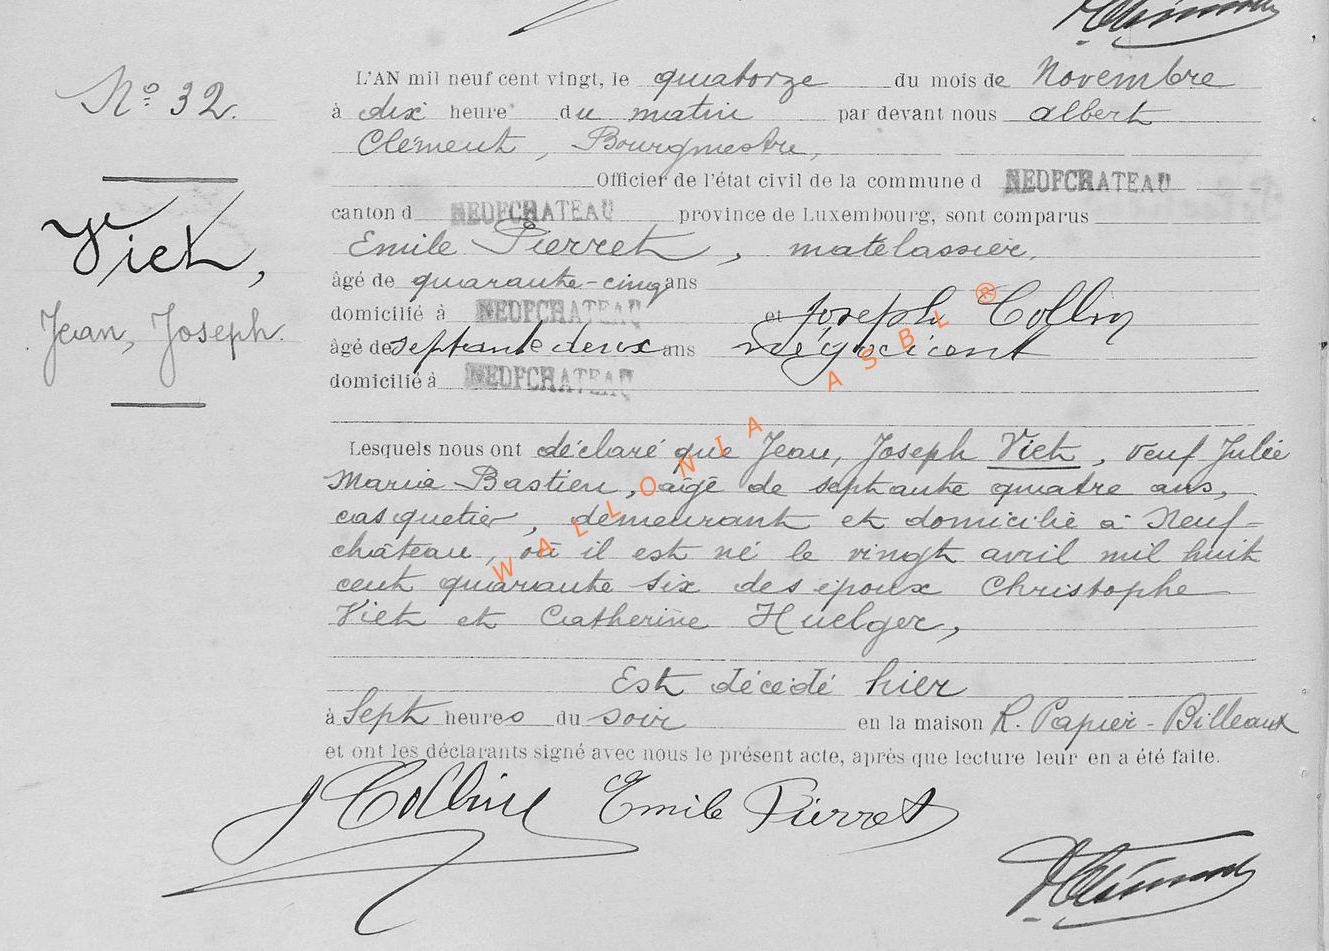 N° 32.
Viet,
Jean, Joseph.
L'AN mil neuf cent vingt, le quatorze du mois de Novembre
à dix heure du matin par devant nous Albert
Clément, Bourgmestre,
Officier de l'état civil de la commune d NEUFCHATEAU
canton d NEUFCHATEAU province de Luxembourg, sont comparus
Emile Pierret, matelassier,
âgé de quarante-cinq ans
domicilié à NEUFCHATEAU et Joseph Collin
âgé de septante deux ans négociant
domicilié à NEUFCHATEAU
Lesquels nous ont déclaré que Jean, Joseph Viet, veuf Julie
Maria Bastien, âgé de septante quatre ans,
casquetier, demeurant et domicilié à Neuf-
château, où il est né le vingt avril mil huit
cent quarante six des époux Christophe
Viet et Catherine Huelger,
Est décédé hier
à Sept heures du soir en la maison R. Papier-Billeaux
et ont les déclarants signé avec nous le présent acte, après que lecture leur en a été faite.
J Collin Emile Pierret
WALLONIA ASBL ®